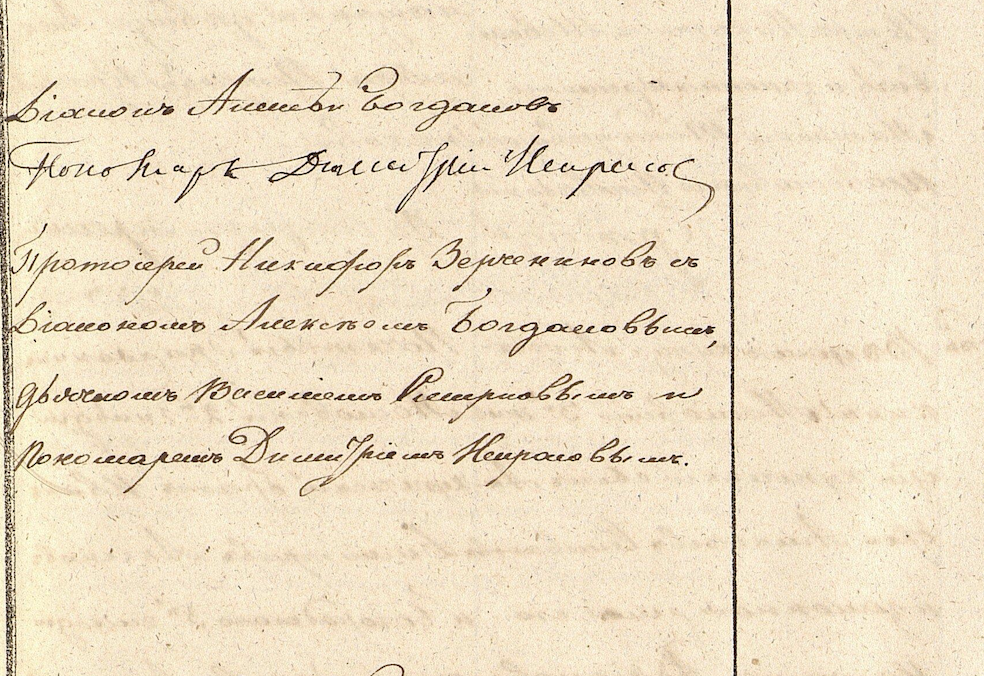 Діаконъ Алексѣй Богдановъ
Пономарь Димитрій Некрасов
Протоіерей Никифоръ Зерчениновъ съ
Діакономъ Алексѣемъ Богдановымъ,
дьячкомъ Василіемъ Смирновымъ и
Пономаремъ Димитріемъ Некрасовымъ.